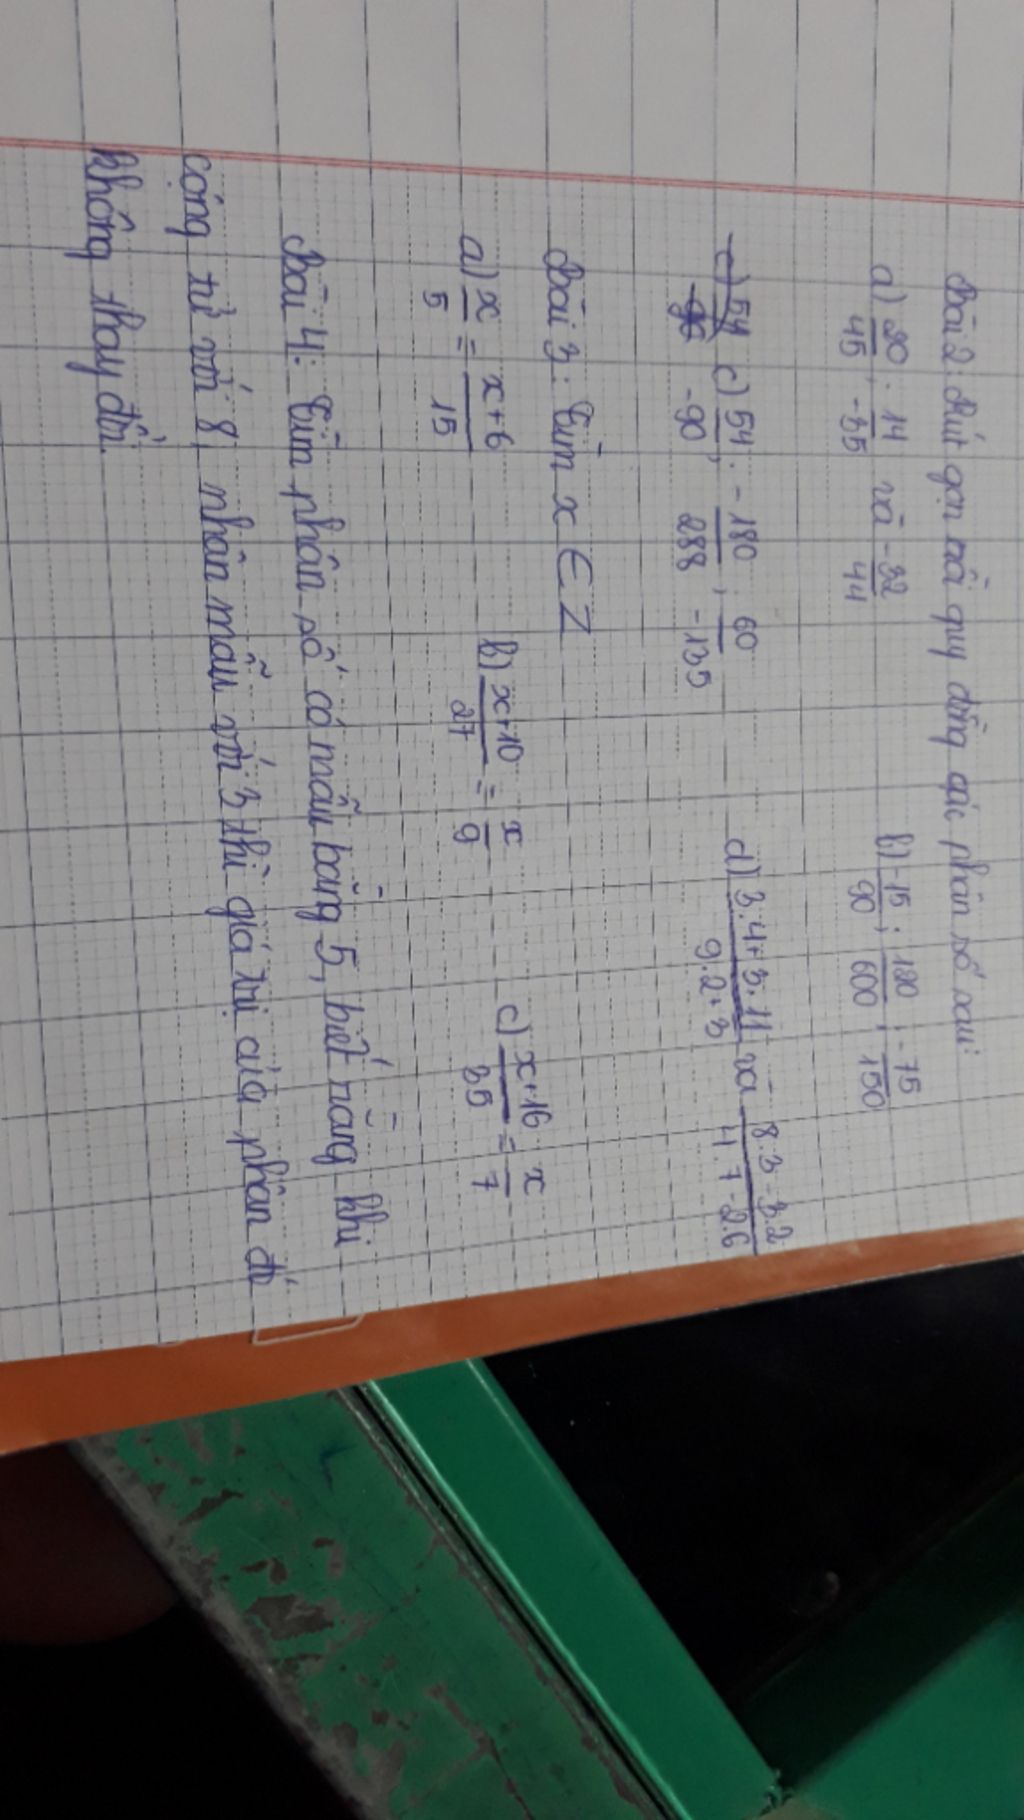 Bài 2: Rút gọn rồi quy đồng các phân số sau:
a) 20/45 ; 14/-35 và -32/44 b) -15/90 ; 120/600 ; -75/150
c) 54/-90 ; -180/288 ; 60/-135 d) 3.4+3.11/9.2+3 và 8.3-3.2/4.7-2.6
Bài 3: Tìm x ∈ Z
a) x/5 = x+6/15 b) x+10/27 = x/9 c) x+16/35 = x/7
Bài 4: Tìm phân số có mẫu bằng 5, biết rằng khi
cộng tử với 8, nhân mẫu với 3 thì giá trị của phân đó
không thay đổi.